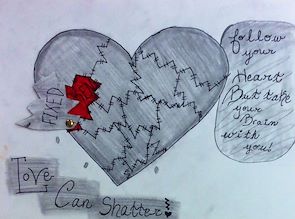 follow
your
Heart
But take
your
Brain
with
you!
FIXED
Love
Can Shatter!